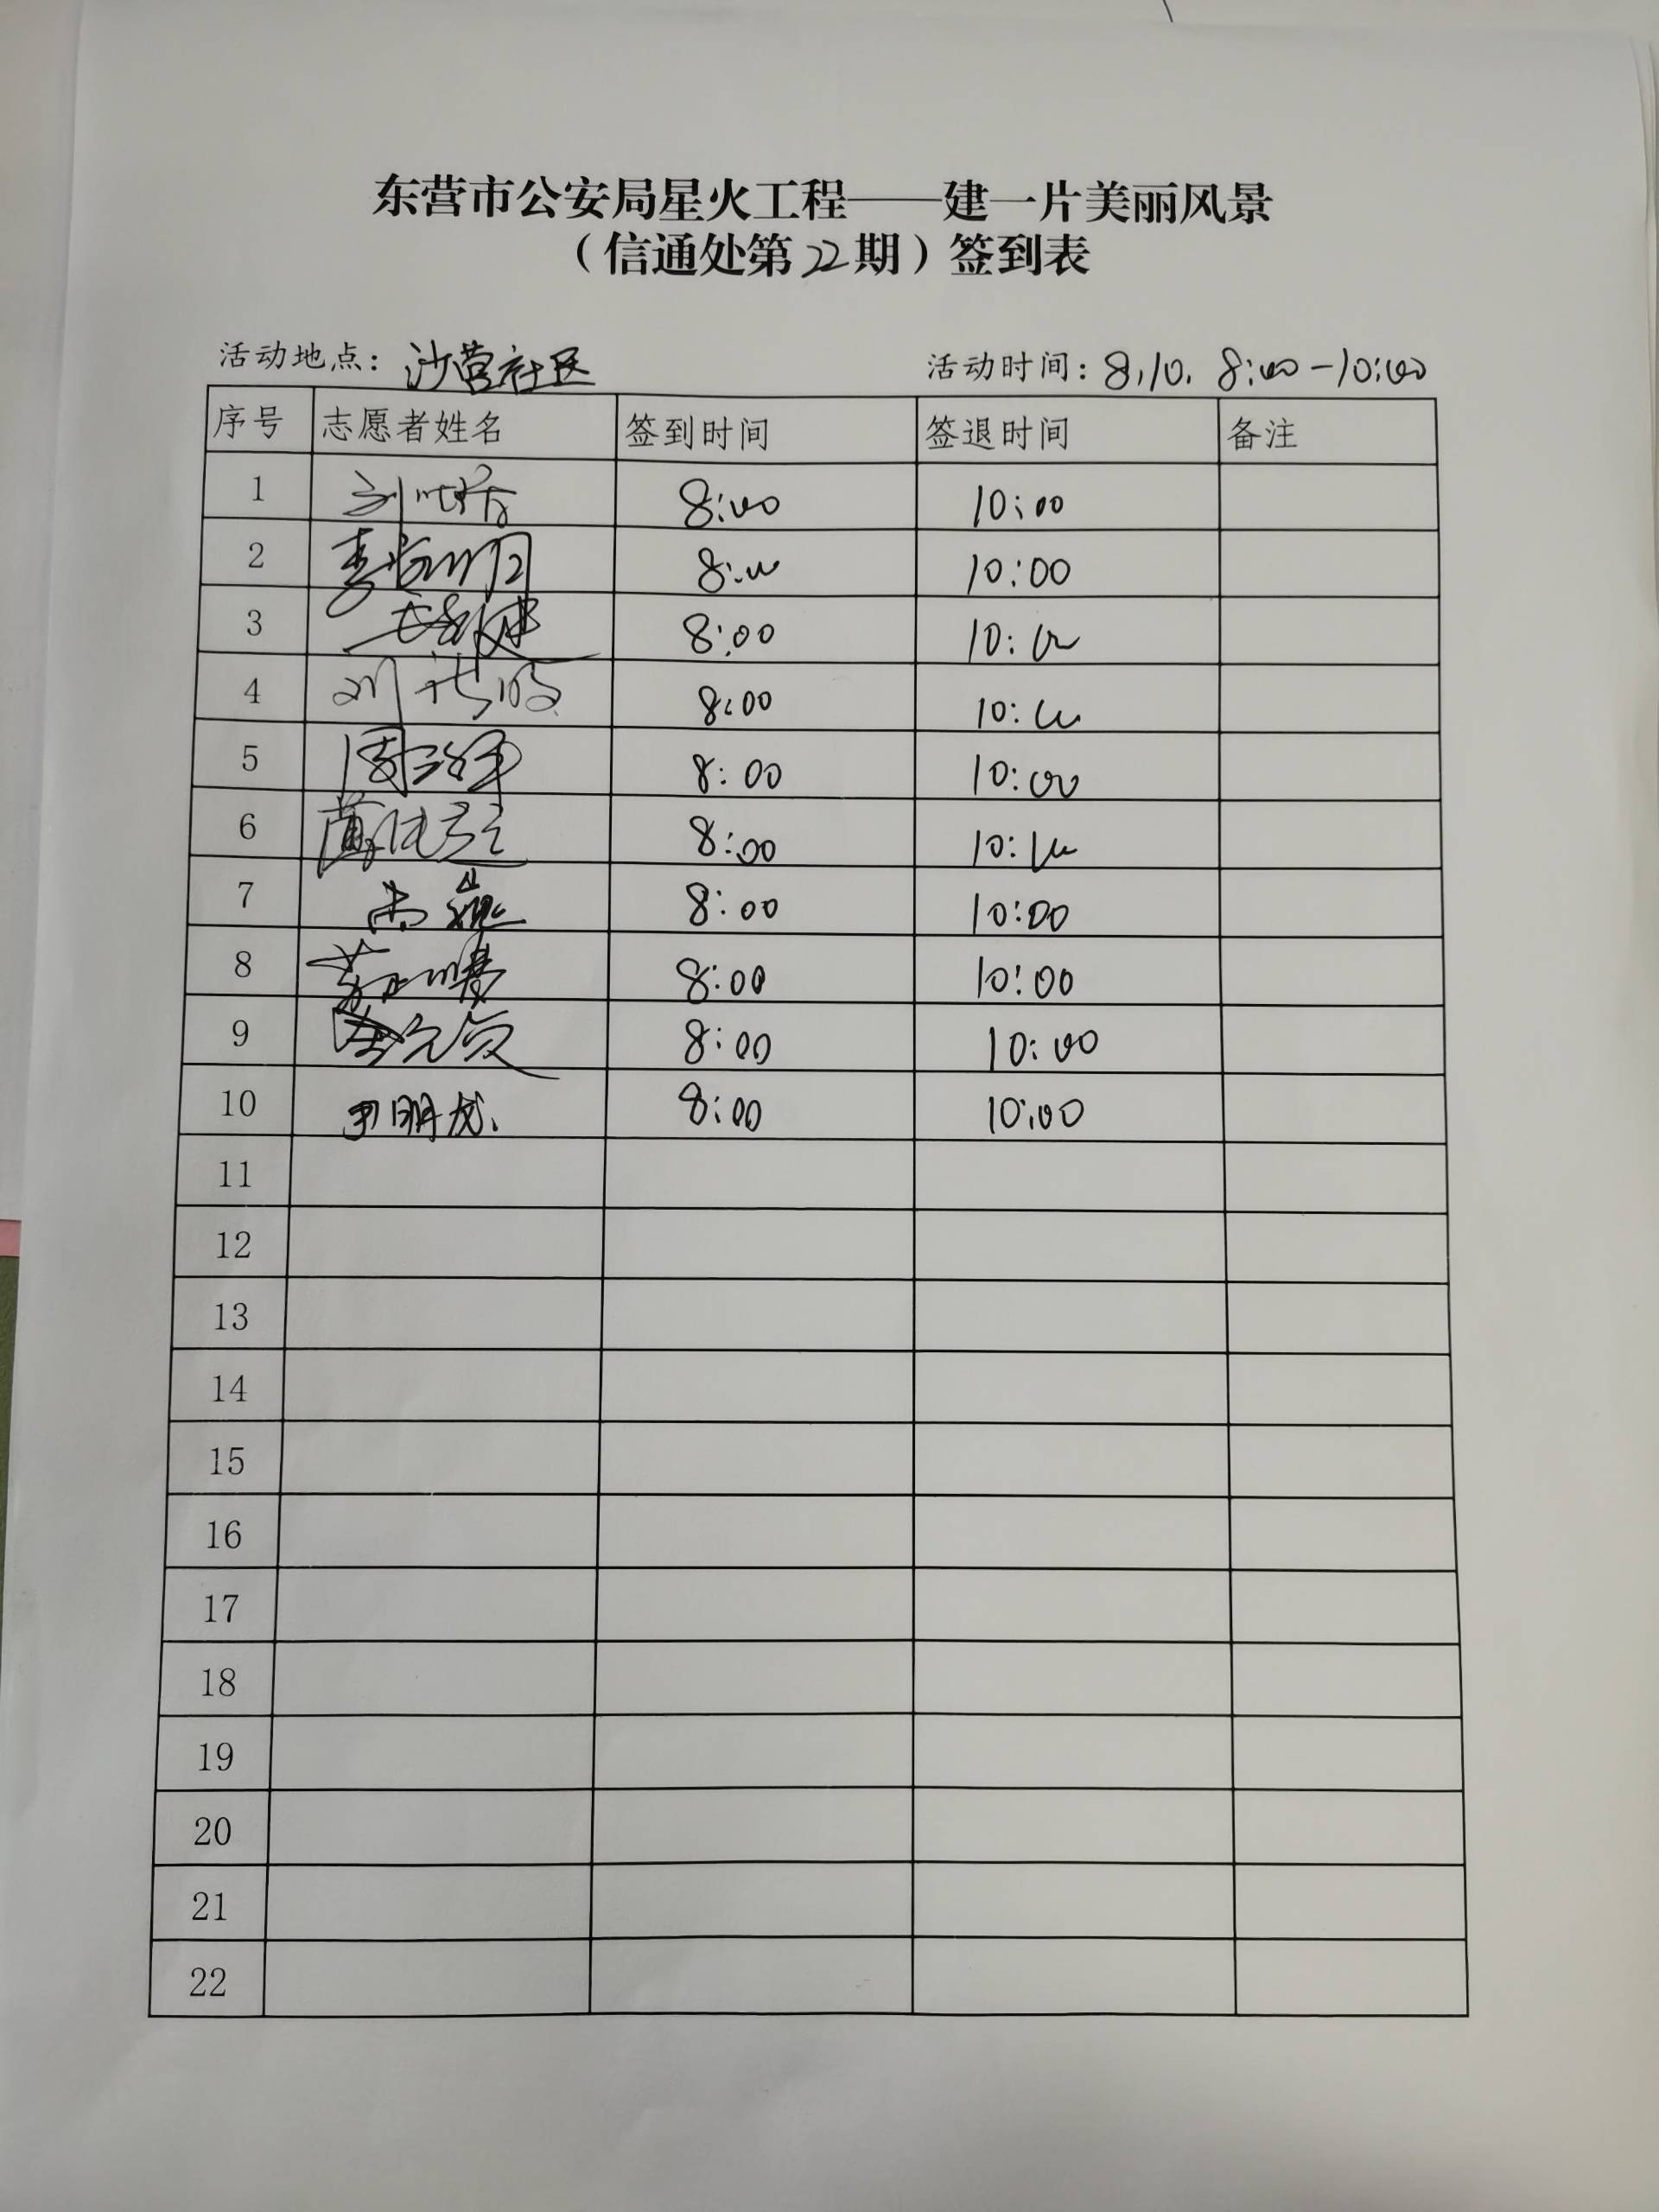 东营市公安局星火工程——建一片美丽风景
（信通处第22期）签到表
活动地点：沙营社区 活动时间：8.10. 8:00-10:00
序号 志愿者姓名 签到时间 签退时间 备注
1 8:00 10:00
2 8:00 10:00
3 8:00 10:00
4 8:00 10:00
5 8:00 10:00
6 8:00 10:00
7 8:00 10:00
8 8:00 10:00
9 8:00 10:00
10 8:00 10:00
11
12
13
14
15
16
17
18
19
20
21
22